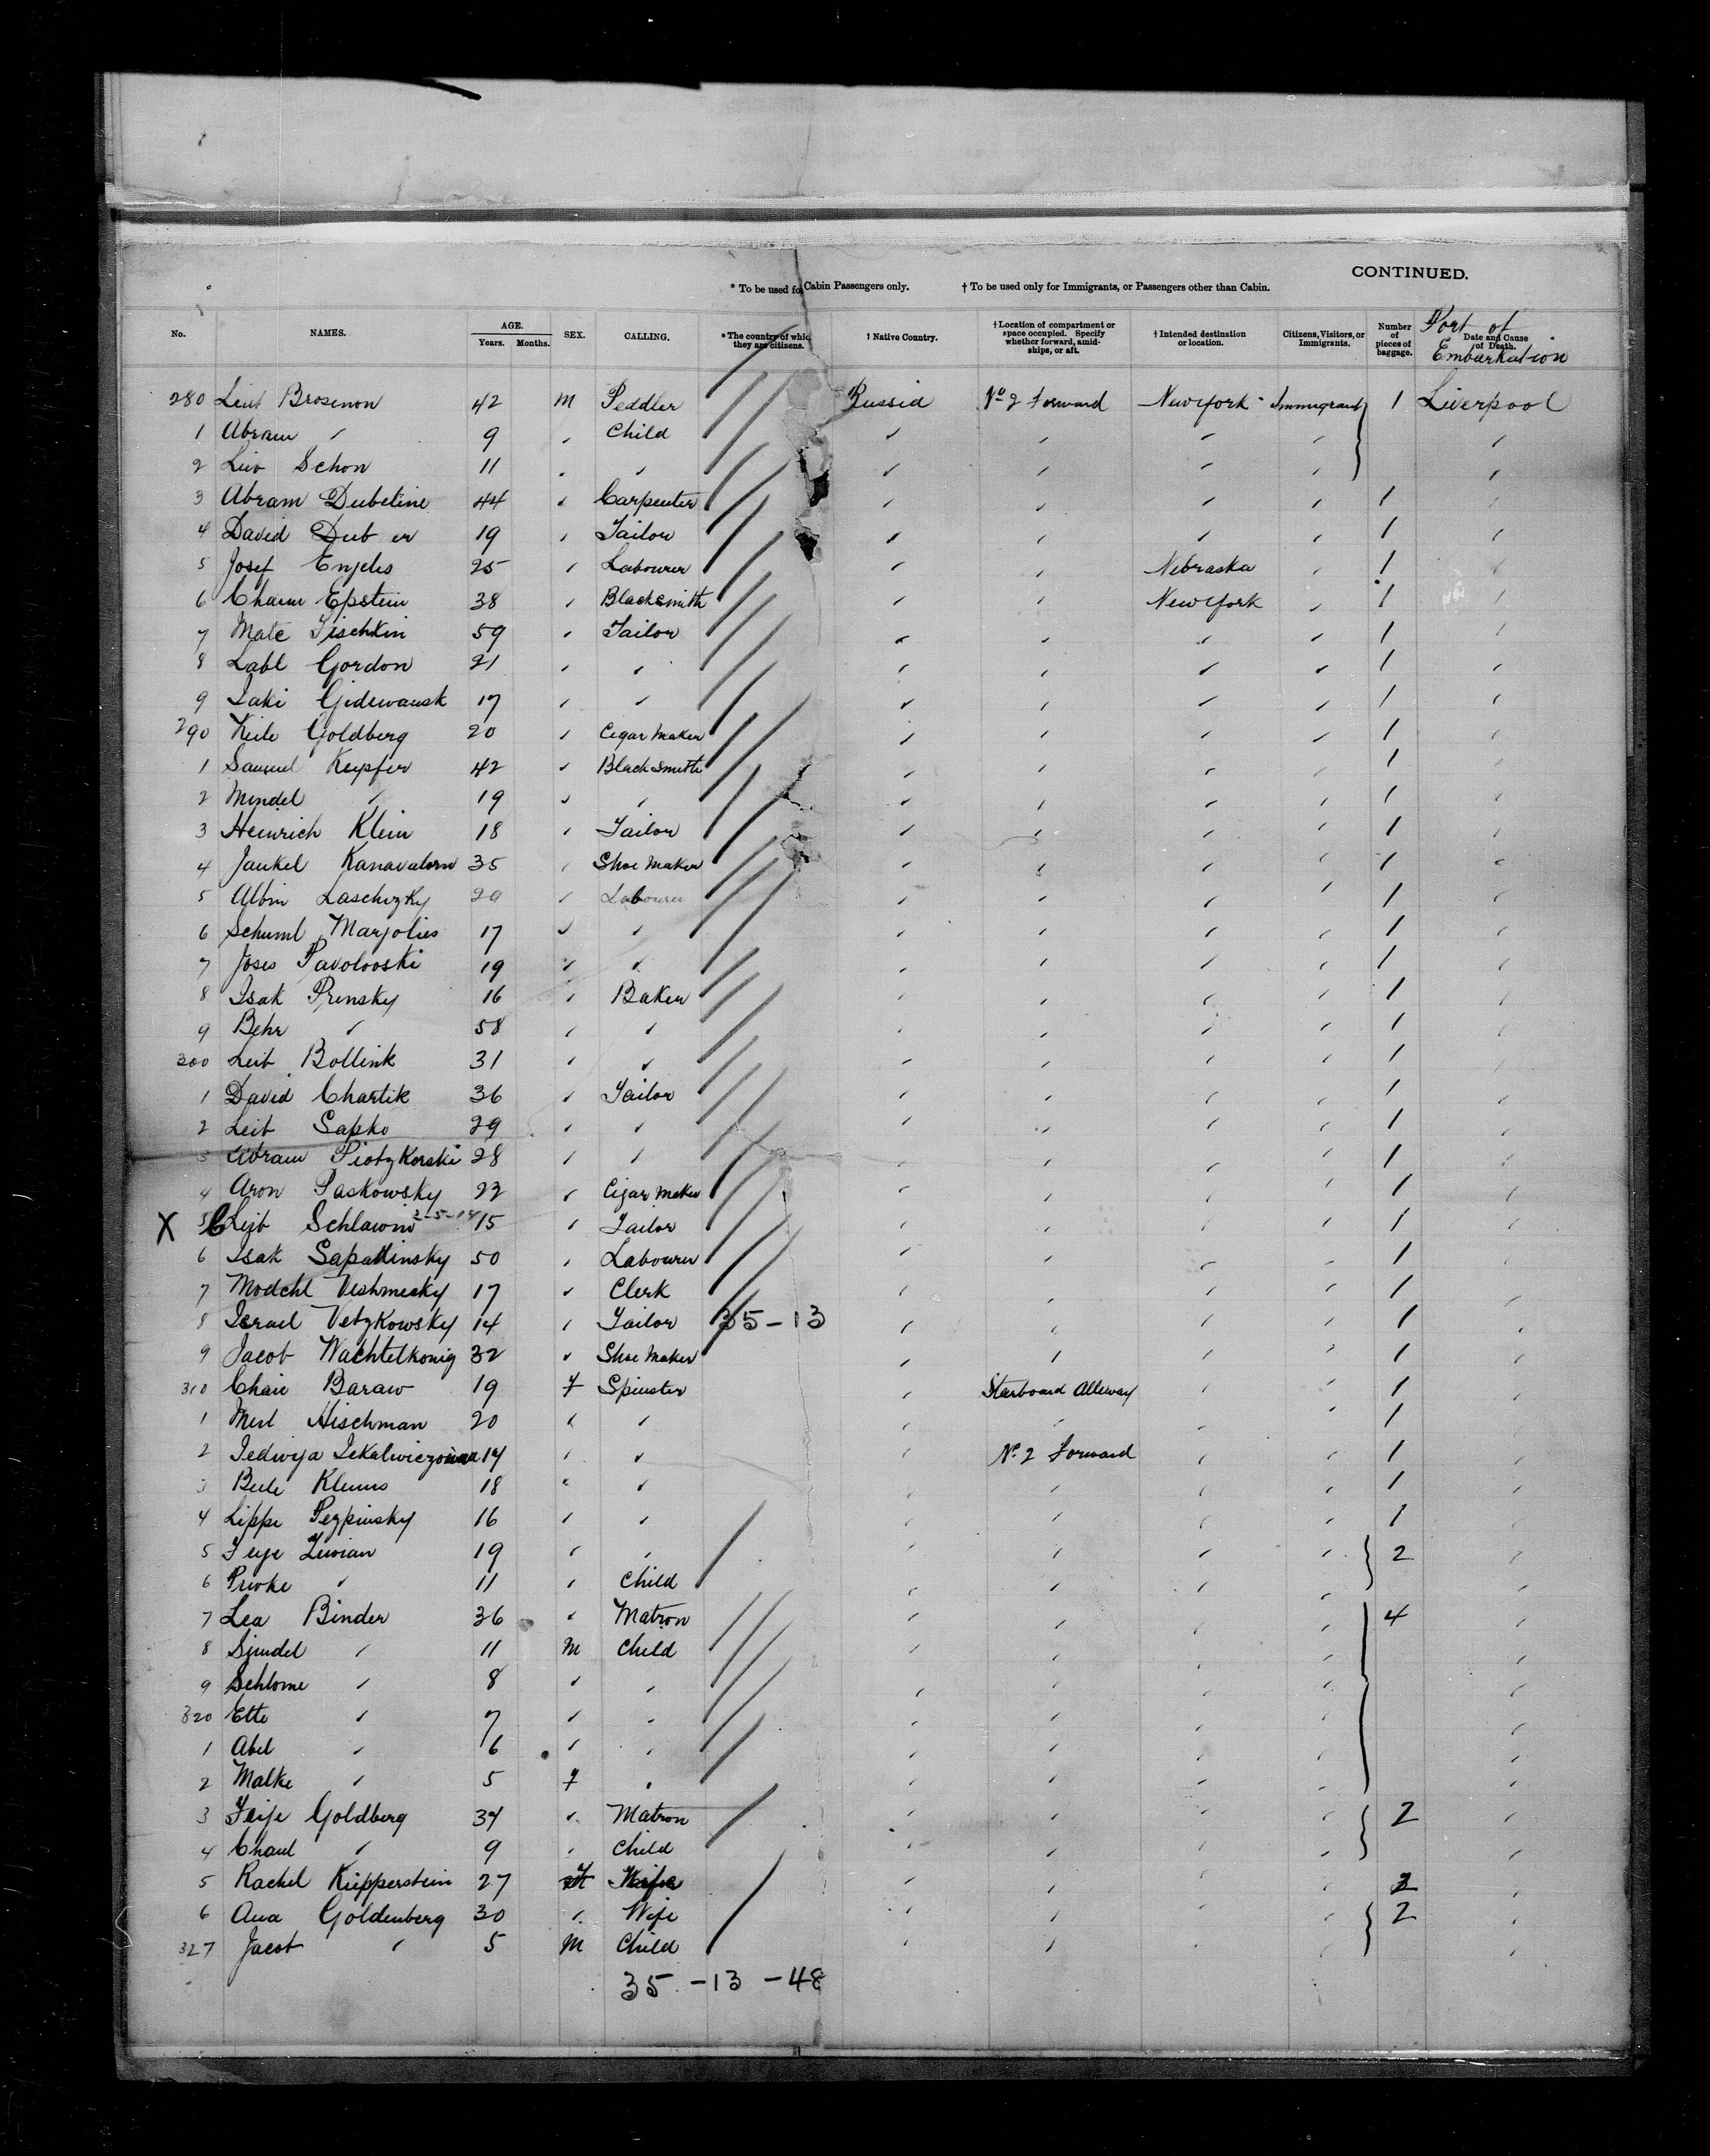 CONTINUED.
* To be used for Cabin Passengers only. † To be used only for Immigrants, or Passengers other than Cabin.
No. NAMES. AGE. Years. Months. SEX. CALLING. * The country of which they are citizens. † Native Country. † Location of compartment or space occupied. Specify whether forward, amidships, or aft. † Intended destination or location. Citizens, Visitors, or Immigrants. Number of pieces of baggage. Date and Cause of Death. Port of Embarkation
280 Brosenon 42 M Peddler Russia No 2 Forward New York Immigrant 1 Liverpool
1 Abram " 9 " Child
2 Schon 11 " "
3 Abram Dubeline 44 " Carpenter 1
4 David Dub er 19 " Tailor 1
5 Josef 25 " Labourer Nebraska 1
6 Epstein 38 " Blacksmith New York 1
7 Mate Fischkin 59 " Tailor 1
8 Labl Gordon 21 " " 1
9 Gidewansk 17 " " 1
290 Keile Goldberg 20 " Cigar Maker 1
1 Samuel Kepfer 42 " Black Smith 1
2 Mendel " 19 " " 1
3 Heinrich Klein 18 " Tailor 1
4 Jankel 35 " Shoe Maker 1
5 Albin Laschezky 29 " Labourer 1
6 Schuml Marjolies 17 " " 1
7 Joses Pavolooski 19 " " 1
8 Isak Prensky 16 " Baker 1
9 Behr " 58 " " 1
300 Leib Bollink 31 " " 1
1 David Chartik 36 " Tailor 1
2 Leib Sapko 29 " " 1
3 Abram PiotzKorski 28 " " 1
4 Aron Paskowsky 22 " Cigar Maker 1
X 5 Leib Schlawin 15 " Tailor 1
6 Isak 50 " Labourer 1
7 Modchl 17 " Clerk 1
8 Israel VetzKowsky 14 " Tailor 35-13 1
9 Jacob Wachtelkonig 32 " Shoe Maker 1
310 Chaie Baraw 19 F Spinster Starboard Alleway 1
1 Merl Hischman 20 " " 1
2 " " No 2 Forward 1
3 Beile 18 " " 1
4 Lippe 16 " " 1
5 Feije 19 " " 2
6 " 11 " Child
7 Lea Binder 36 " Matron 4
8 " 11 M Child
9 Schlome " 8 " "
320 Ette " 7 " "
1 Abel " 6 " "
2 Malke " 5 F "
3 Feije Goldberg 34 " Matron 2
4 " 9 " Child
5 Rachel Kupperstein 27 F Wife 2
6 Ana Goldenberg 30 " Wife 2
327 Jacob " 5 M Child
35 -13 -48